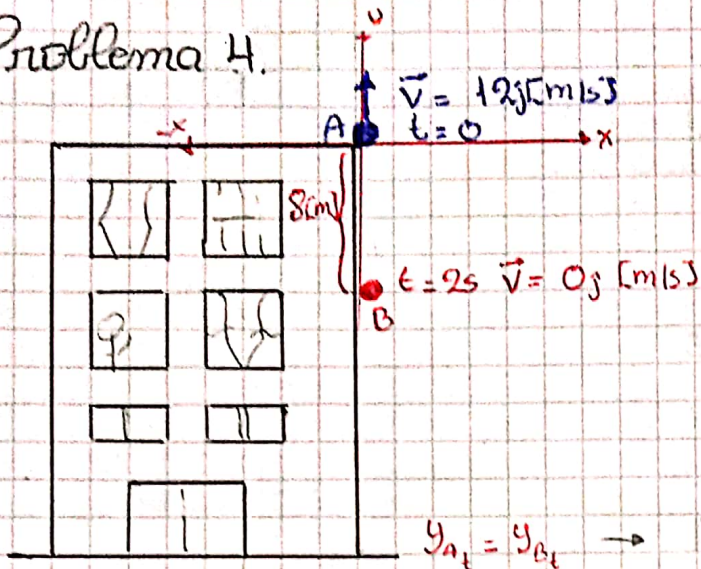 Problema 4.
y
v⃗ = 12j[m/s]
A t = 0
-x x
8[m]
t = 2s v⃗ = 0j [m/s]
B
y_A_t = y_B_t →